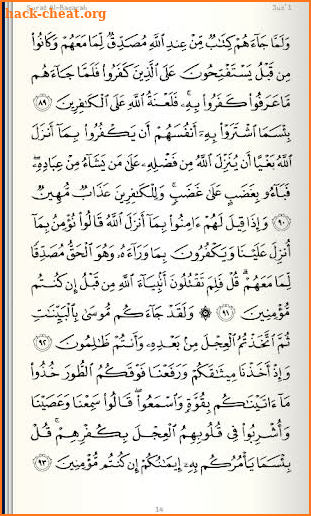 Surat Al-Baqarah Juz' 1
وَلَمَّا جَآءَهُمْ كِتَٰبٌ مِّنْ عِندِ ٱللَّهِ مُصَدِّقٌ لِّمَا مَعَهُمْ وَكَانُوا۟
مِن قَبْلُ يَسْتَفْتِحُونَ عَلَى ٱلَّذِينَ كَفَرُوا۟ فَلَمَّا جَآءَهُم
مَّا عَرَفُوا۟ كَفَرُوا۟ بِهِۦ ۚ فَلَعْنَةُ ٱللَّهِ عَلَى ٱلْكَٰفِرِينَ ٨٩
بِئْسَمَا ٱشْتَرَوْا۟ بِهِۦٓ أَنفُسَهُمْ أَن يَكْفُرُوا۟ بِمَآ أَنزَلَ
ٱللَّهُ بَغْيًا أَن يُنَزِّلَ ٱللَّهُ مِن فَضْلِهِۦ عَلَىٰ مَن يَشَآءُ مِنْ عِبَادِهِۦ ۖ
فَبَآءُو بِغَضَبٍ عَلَىٰ غَضَبٍ ۚ وَلِلْكَٰفِرِينَ عَذَابٌ مُّهِينٌ
٩٠ وَإِذَا قِيلَ لَهُمْ ءَامِنُوا۟ بِمَآ أَنزَلَ ٱللَّهُ قَالُوا۟ نُؤْمِنُ بِمَآ
أُنزِلَ عَلَيْنَا وَيَكْفُرُونَ بِمَا وَرَآءَهُۥ وَهُوَ ٱلْحَقُّ مُصَدِّقًا
لِّمَا مَعَهُمْ ۗ قُلْ فَلِمَ تَقْتُلُونَ أَنۢبِيَآءَ ٱللَّهِ مِن قَبْلُ إِن كُنتُم
مُّؤْمِنِينَ ٩١ ۞ وَلَقَدْ جَآءَكُم مُّوسَىٰ بِٱلْبَيِّنَٰتِ
ثُمَّ ٱتَّخَذْتُمُ ٱلْعِجْلَ مِنۢ بَعْدِهِۦ وَأَنتُمْ ظَٰلِمُونَ ٩٢
وَإِذْ أَخَذْنَا مِيثَٰقَكُمْ وَرَفَعْنَا فَوْقَكُمُ ٱلطُّورَ خُذُوا۟
مَآ ءَاتَيْنَٰكُم بِقُوَّةٍ وَٱسْمَعُوا۟ ۖ قَالُوا۟ سَمِعْنَا وَعَصَيْنَا
وَأُشْرِبُوا۟ فِى قُلُوبِهِمُ ٱلْعِجْلَ بِكُفْرِهِمْ ۚ قُلْ
بِئْسَمَا يَأْمُرُكُم بِهِۦٓ إِيمَٰنُكُمْ إِن كُنتُم مُّؤْمِنِينَ ٩٣
14
hack-cheat.org
hack-cheat.org